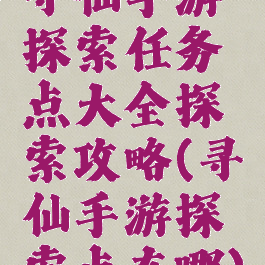 寻仙手游
探索任务
点大全探
索攻略(寻
仙手游探
索点在哪)